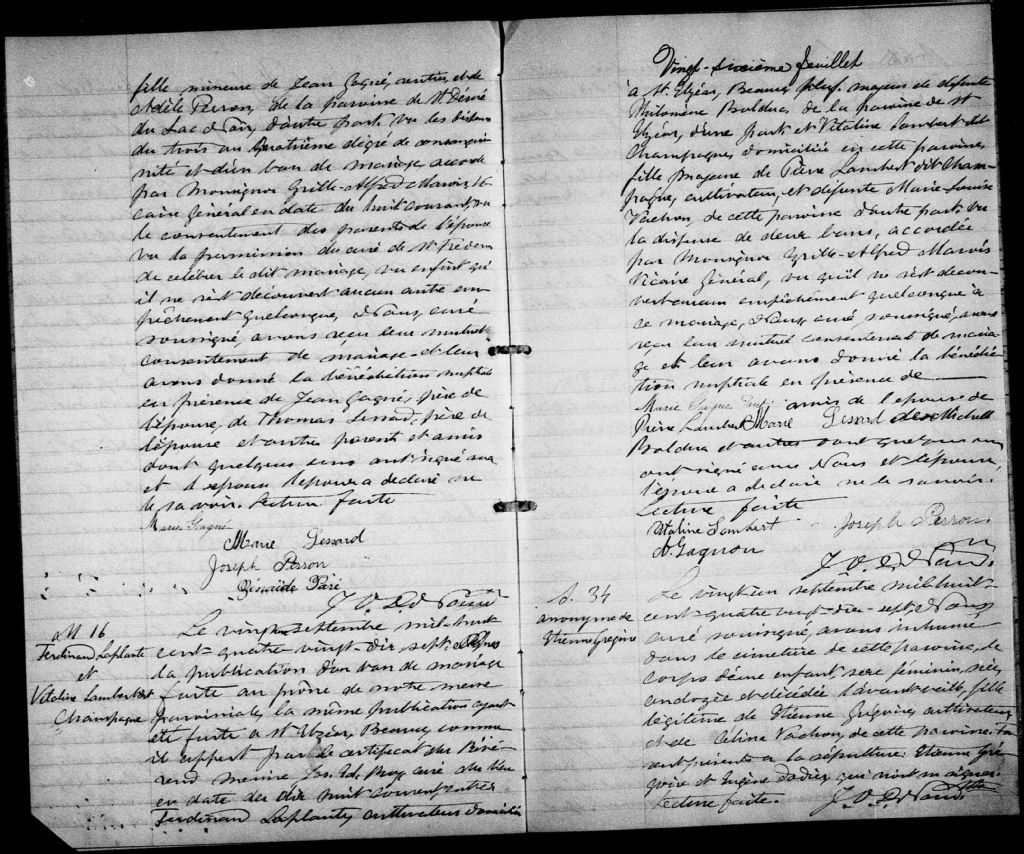 fille mineure de Jean Gagné, rentier, et de
Adèle Perron, de la paroisse de St Désiré
du Lac Noir, d'autre part. vu les dispens
du trois au quatrième degré de consanguin
nité et d'un ban de mariage accordé
par Monsignor Grille-Alfred Marois, Vi
caire Général en date du huit courant, vu
le consentement des parents de l'épouse
vu la permission du curé de St Fréderic
de celebrer le dit mariage, vu enfin qu'
il ne s'est découvert aucun autre em
pêchement quelconque, Nous, curé
soussigné, avons reçu leur mutuel
consentement de mariage et leur
avons donné la bénédiction nuptiale
en présence de Jean Gagné, père de
l'épouse, de Thomas Lessard, frère de
l'épouse et autres parents et amis
dont quelques uns ont signé avec
et l'epoux l'epouse a declaré ne
le savoir. Lecture faite
Marie Gagné
Marie Lessard
Joseph Perron
Zénaïde Paré
M 16
Ferdinand Laplante
et
Vitaline Lambert dit
Champagne
Le vingt septembre mil-huit
cent-quatre vingt-dix sept. Après
la publication d'un ban de mariage
faite au prône de notre messe
paroissiale, la même publication ayant
été faite a St Elzéar, Beauce, comme
il appert par le certificat du Révé-
rend messire curé du lieu
en date du dix huit courant, entre
Ferdinand Laplante, cultivateur, domicilié
Vingt-sixième feuillet
à St. Elzéar, Beauce, fils majeur de défunte
Philomène Bolduc, de la paroisse de St
Elzéar, d'une part et Vitaline Lambert dit
Champagne, domiciliée en cette paroisse,
fille majeure de Pierre Lambert dit Cham-
pagne, cultivateur, et défunte Marie-Louise
Vachon, de cette paroisse d'autre part. vu
la dispense de deux bans, accordée
par Monsignor Grille-Alfred Marois
Vicaire Général, vu qu'il ne s'est decou-
vert aucun empêchement quelconque à
ce mariage, Nous, curé soussigné, avons
reçu leur mutuel consentement de maria
ge et leur avons donné la bénédic
tion nuptiale en présence de
Marie Gagné amies de l'epouse de
Pierre Lambert Marie Lessard de Michel
Bolduc et autres dont quelques uns
ont signé avec Nous et l'épouse,
l'époux a declaré ne le savoir.
Lecture faite
Vitaline Lambert Joseph Perron
A. Gagnon
S. 34
anonyme de
Etienne Grégoire
Le vingt un septembre mil huit
cent-quatre vingt-dix-sept, Nous
curé soussigné, avons inhumé
dans le cimetière de cette paroisse, le
corps d'une enfant, sexe féminin, née,
ondoyée et décédée l'avant veille, fille
légitime de Etienne Grégoire, cultivateur,
et de Célina Vachon, de cette paroisse. Fu
rent présents a la sépulture: Etienne Gré
goire et Eugène Nadeau qui n'ont su signer.
Lecture faite.